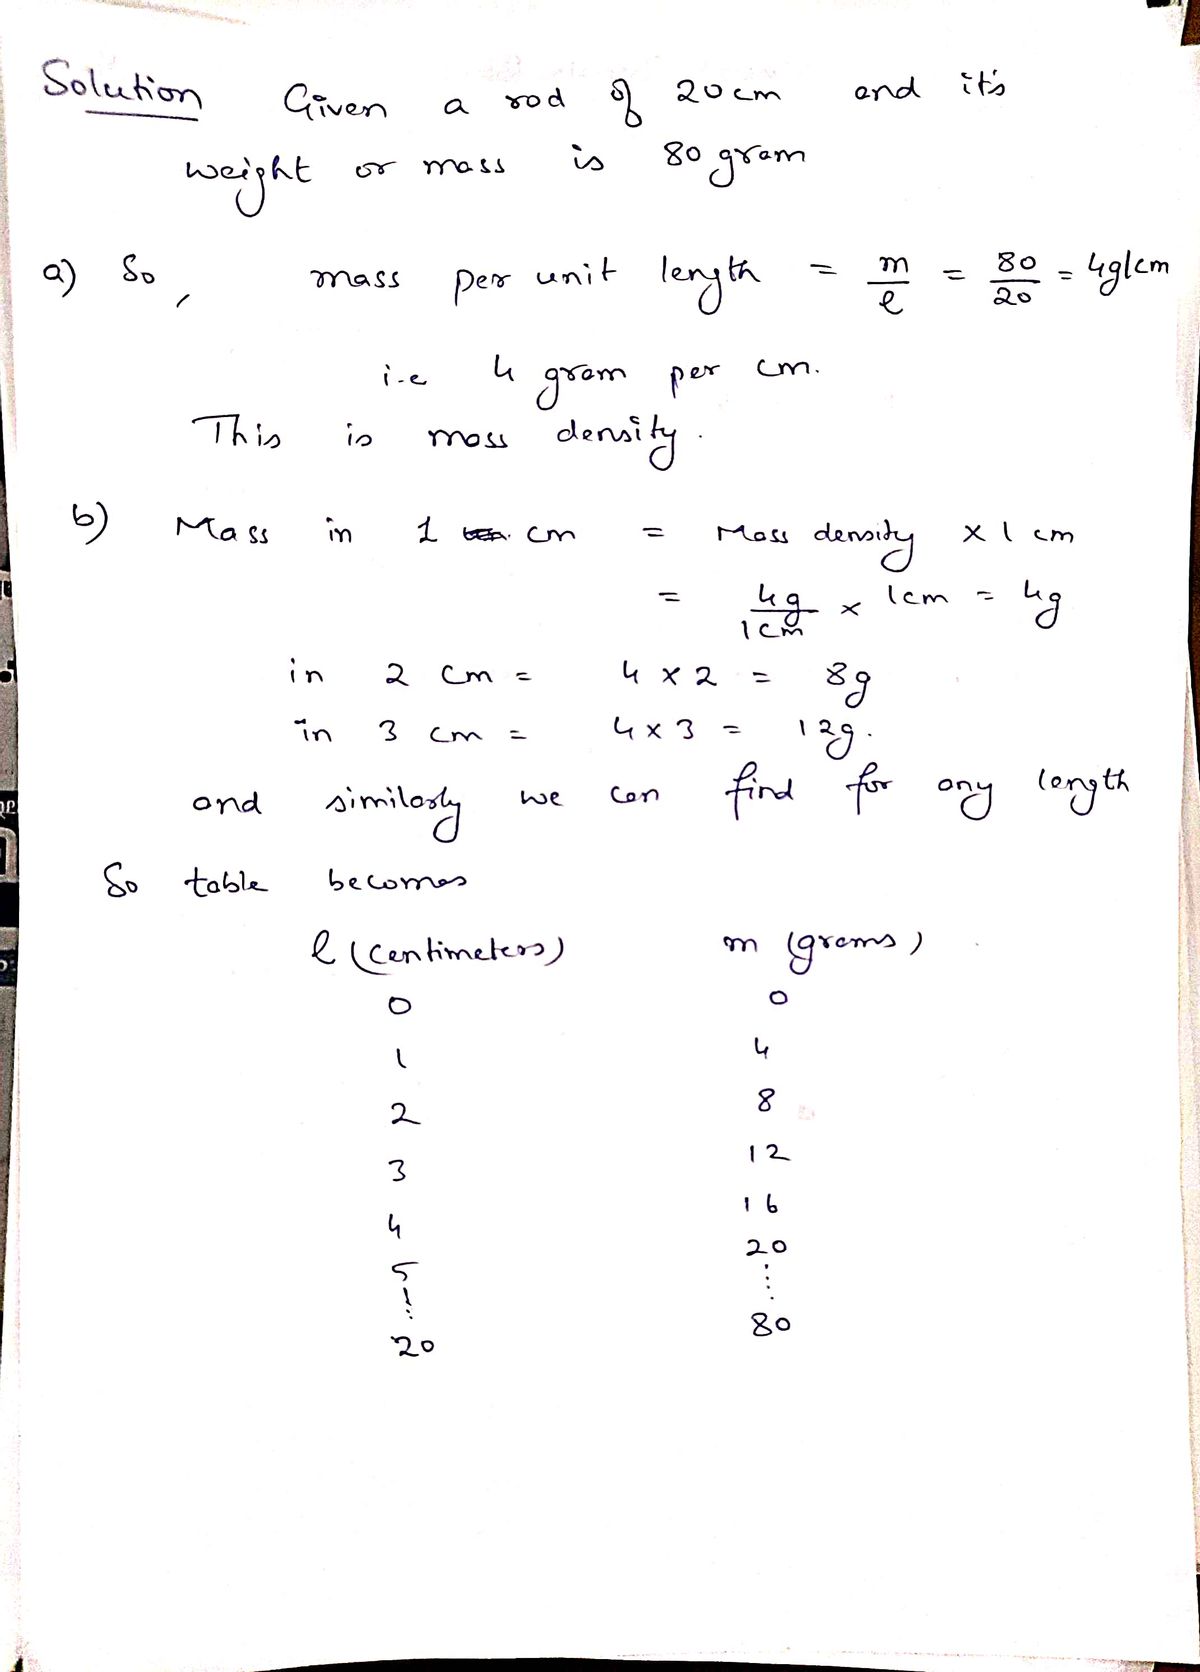 Solution Given a rod of 20cm and it's
weight or mass is 80 gram
a) So, mass per unit length = m/l = 80/20 = 4g/cm
i.e 4 gram per cm.
This is mass density.
b) Mass in 1 cm = Mass density × 1 cm
= 4g/1cm × 1cm = 4g
in 2 cm = 4 × 2 = 8g
in 3 cm = 4 × 3 = 12g.
and similarly we can find for any length
So table becomes
l (centimeters) m (grams)
0 0
1 4
2 8
3 12
4 16
5 20
20 80